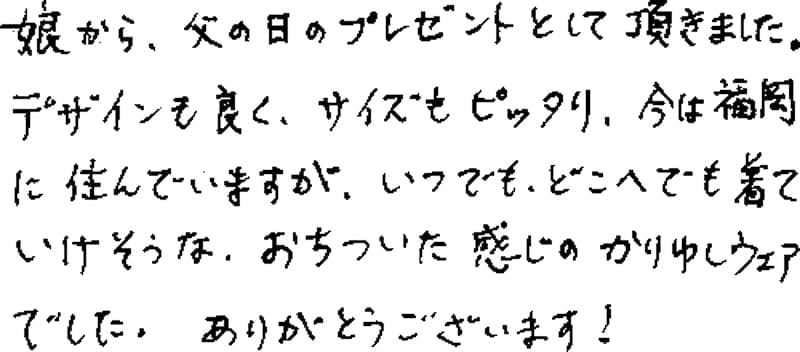 娘から、父の日のプレゼントとして頂きました。
デザインも良く、サイズもピッタリ、今は福岡
に住んでいますが、いつでも、どこへでも着て
いけそうな、おちついた感じのかりゆしウェア
でした。ありがとうございます!